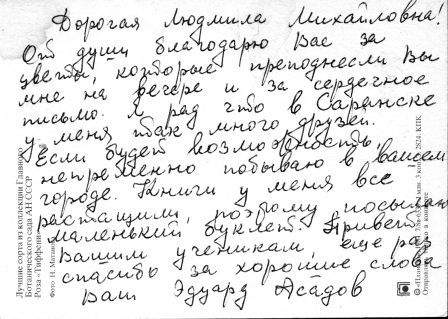 Дорогая Людмила Михайловна!
От души благодарю Вас за
цветы, которые преподнесли Вы
мне на вечере и за сердечное
письмо. Я рад что в Саранске
у меня так много друзей.
Если будет возможность,
непременно побываю в вашем
городе. Книги у меня все
растащили, поэтому посылаю
маленький буклет. Привет
Вашим ученикам, еще раз
спасибо за хорошие слова
Ваш Эдуард Асадов
Лучшие сорта из коллекции Главного
Ботанического сада АН СССР
Роза «Тиффани»
Фото Н.